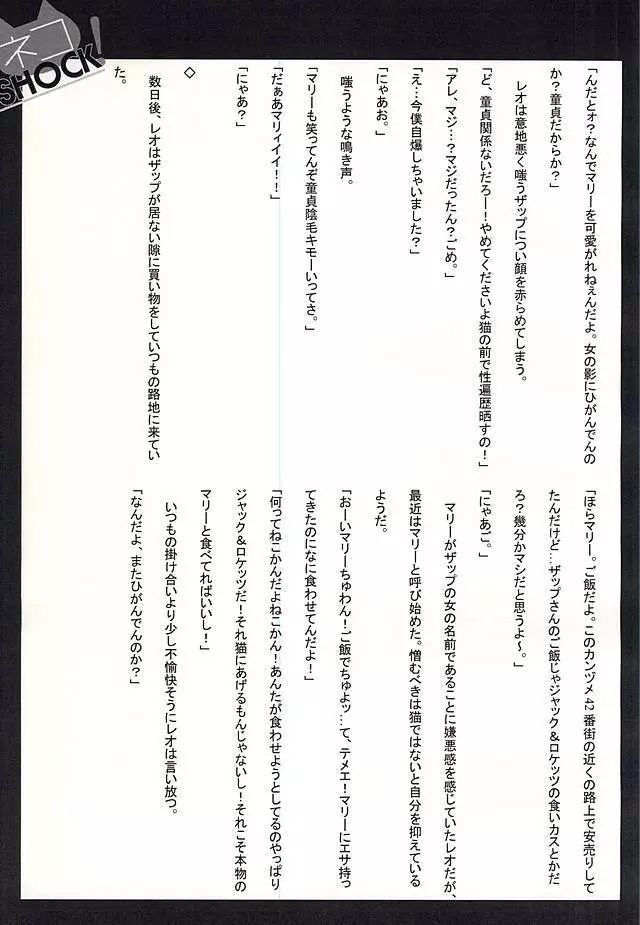 ネコ
SHOCK!
「んだとォ?なんでマリーを可愛がれねぇんだよ。女の影にひがんでんの
か?童貞だからか?」
レオは意地悪く嗤うザップについ顔を赤らめてしまう。
「ど、童貞関係ないだろー!やめてくださいよ猫の前で性遍歴晒すの!」
「アレ、マジ…?マジだったん?ごめ。」
「え…今僕自爆しちゃいました?」
「にゃあお。」
嗤うような鳴き声。
「マリーも笑ってんぞ童貞陰毛キモーいってさ。」
「だぁあマリィイイ!!」
「にゃあ?」
◇
数日後、レオはザップが居ない隙に買い物をしていつもの路地に来てい
た。
「ほらマリー。ご飯だよ。このカンヅメ42番街の近くの路上で安売りして
たんだけど…ザップさんのご飯じゃジャック&ロケッツの食いカスとかだ
ろ?幾分かマシだと思うよ〜。」
「にゃあご。」
マリーがザップの女の名前であることに嫌悪感を感じていたレオだが、
最近はマリーと呼び始めた。憎むべきは猫ではないと自分を抑えている
ようだ。
「おーいマリーちゅわん!ご飯でちゅよッ…て、テメエ!マリーにエサ持っ
てきたのになに食わせてんだよ!」
「何ってねこかんだよねこかん!あんたが食わせようとしてるのやっぱり
ジャック&ロケッツだ!それ猫にあげるもんじゃないし!それこそ本物の
マリーと食べてればいいし!」
いつもの掛け合いより少し不愉快そうにレオは言い放つ。
「なんだよ、またひがんでんのか?」